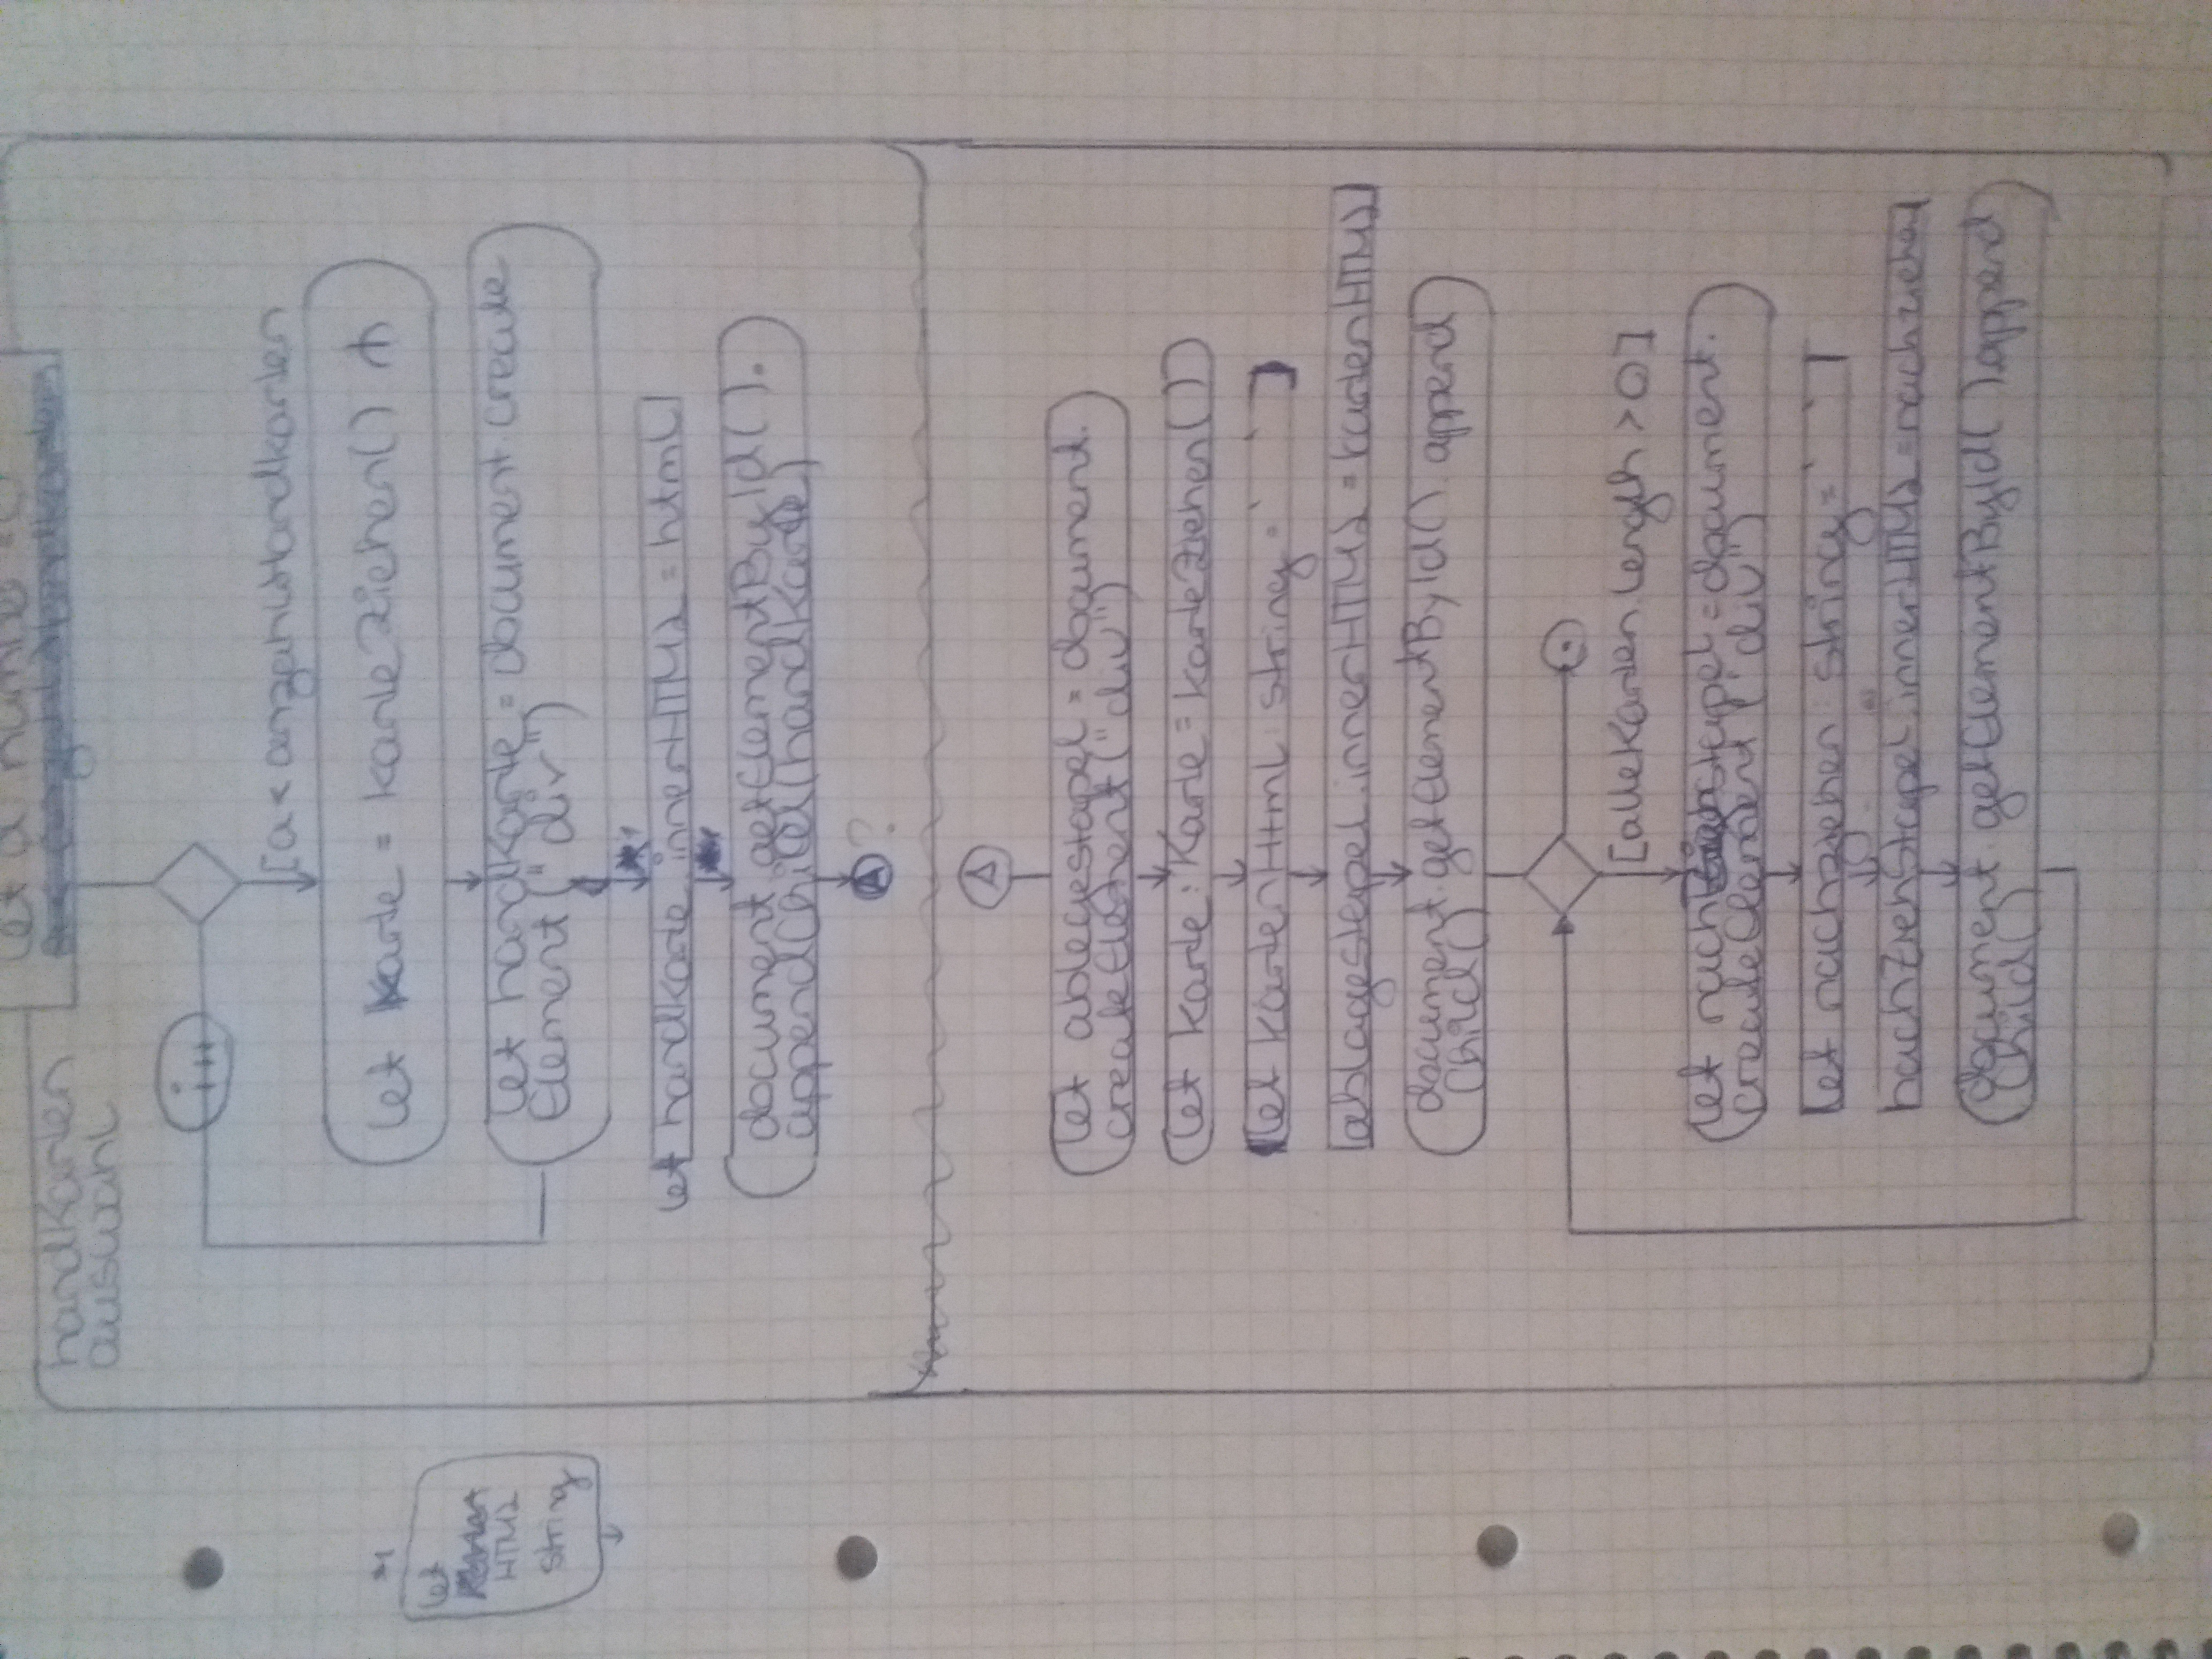 let a numbe
handkarten
auswahl
[a < anzahlHandkarten
let Karte = karteZiehen()
*1
let
HTML
string
let handkarte = document.create
Element("div")
*1
let handkarte.innerHTML = html
document.getElementById().
appendChild(handkarte)
A ?
A
let ablegestapel = document.
createElement("div")
let karte: Karte = karteZiehen()
let kartenHtml string = ` `
ablagestapel.innerHTML = kartenHTML
document.getElementById().append
Child()
[alleKarten.length > 0]
let nachziehstapel = document.
createElement("div")
let nachziehen string = ` `
nachziehstapel.innerHTML = nachziehen
document.getElementById().append
Child()